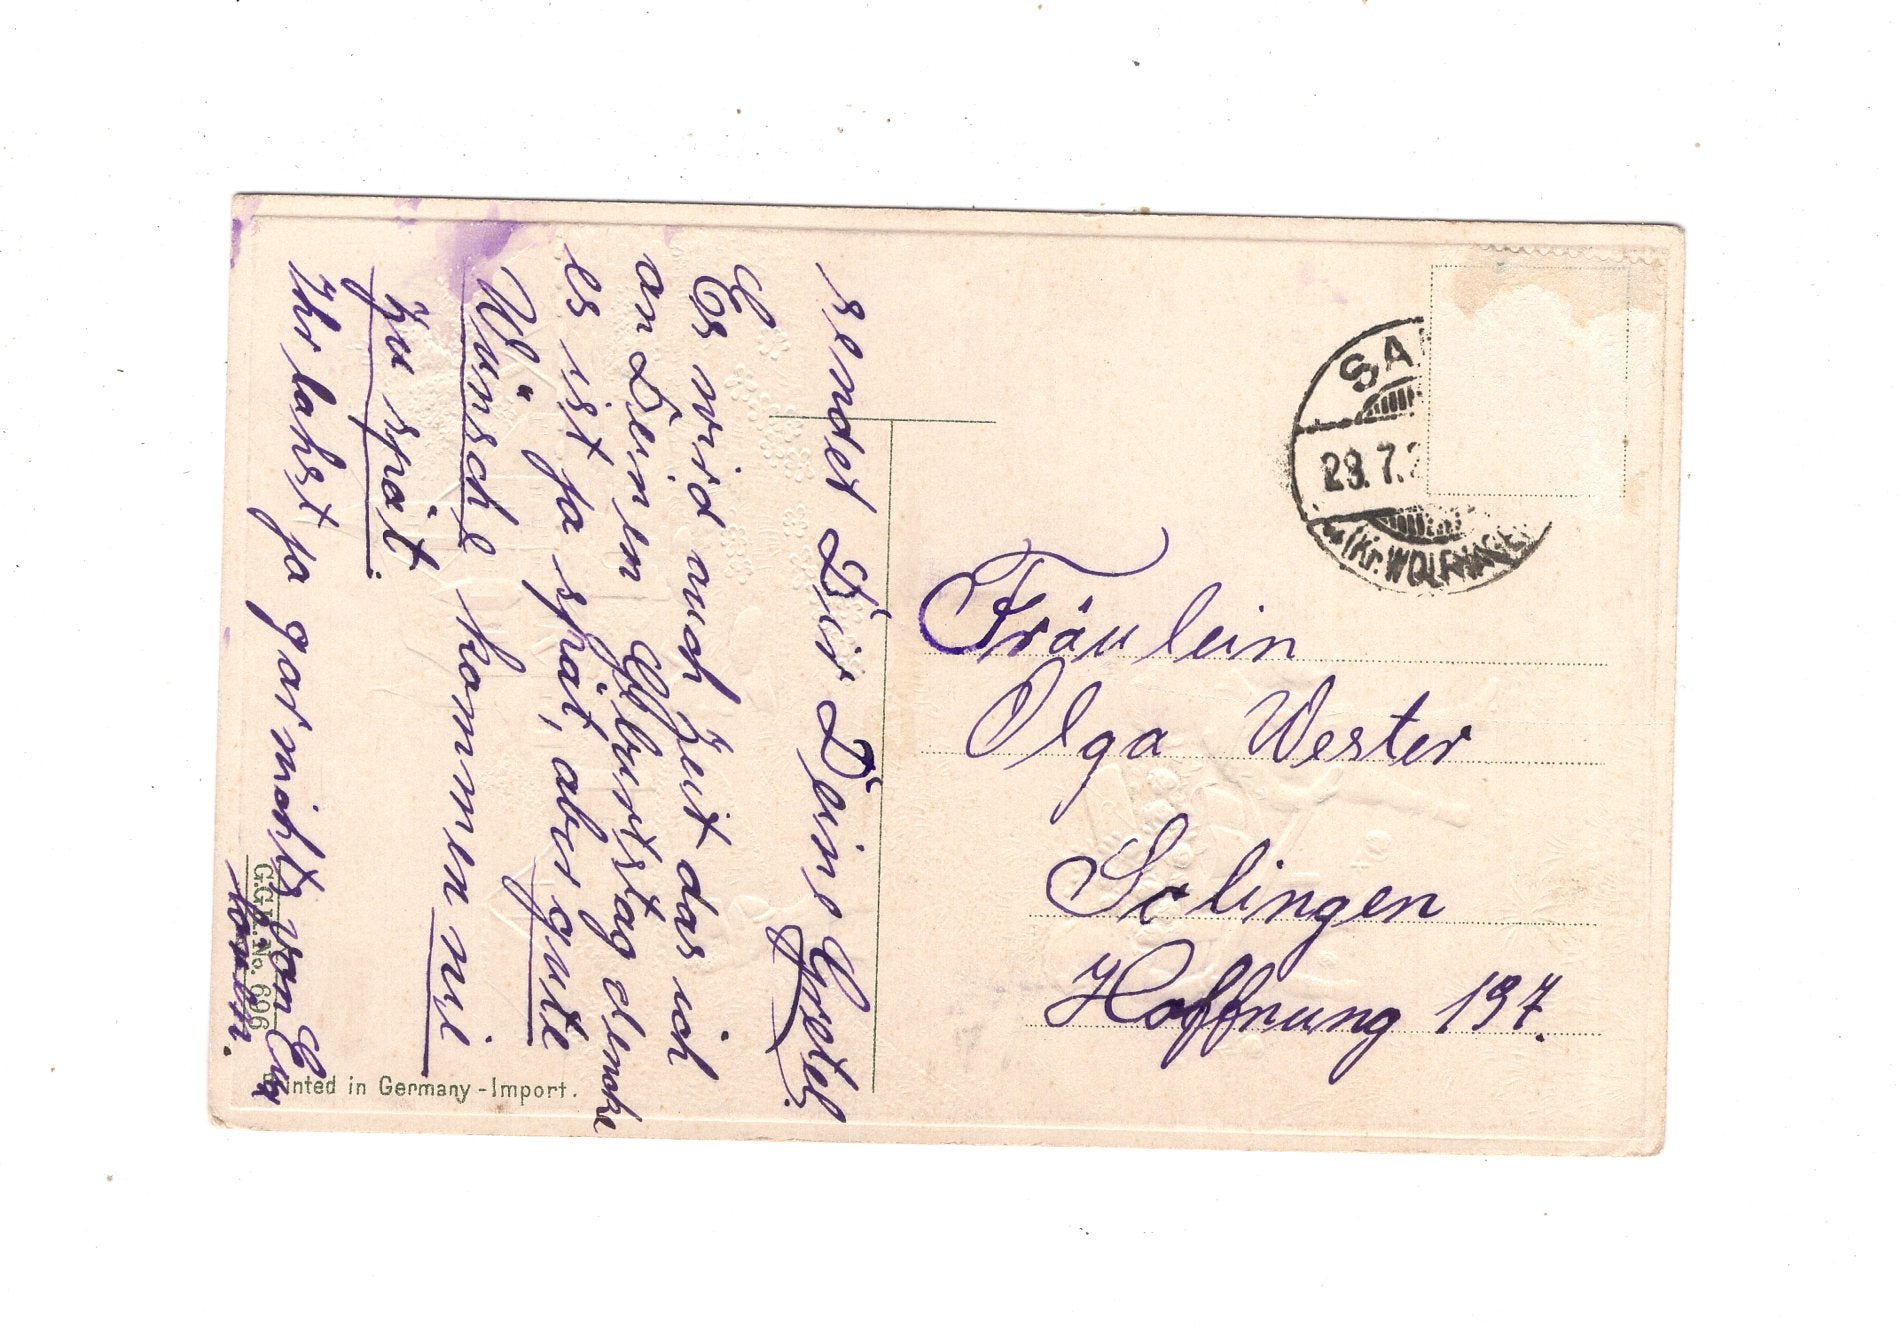 sendet Dir Deine Gretel.
Es wird auch Zeit das ich
an Deinen Geburtstag denke
es ist ja spät, aber gute
Wünsche kommen nie
zu spät.
Ihr lahst ja gar nichts von Euch
hören.
Fräulein
Olga Wester
Solingen
Hoffnung 197.
SA
29.7.
(Kr. WOLFHAGE
No. 696
Printed in Germany - Import.